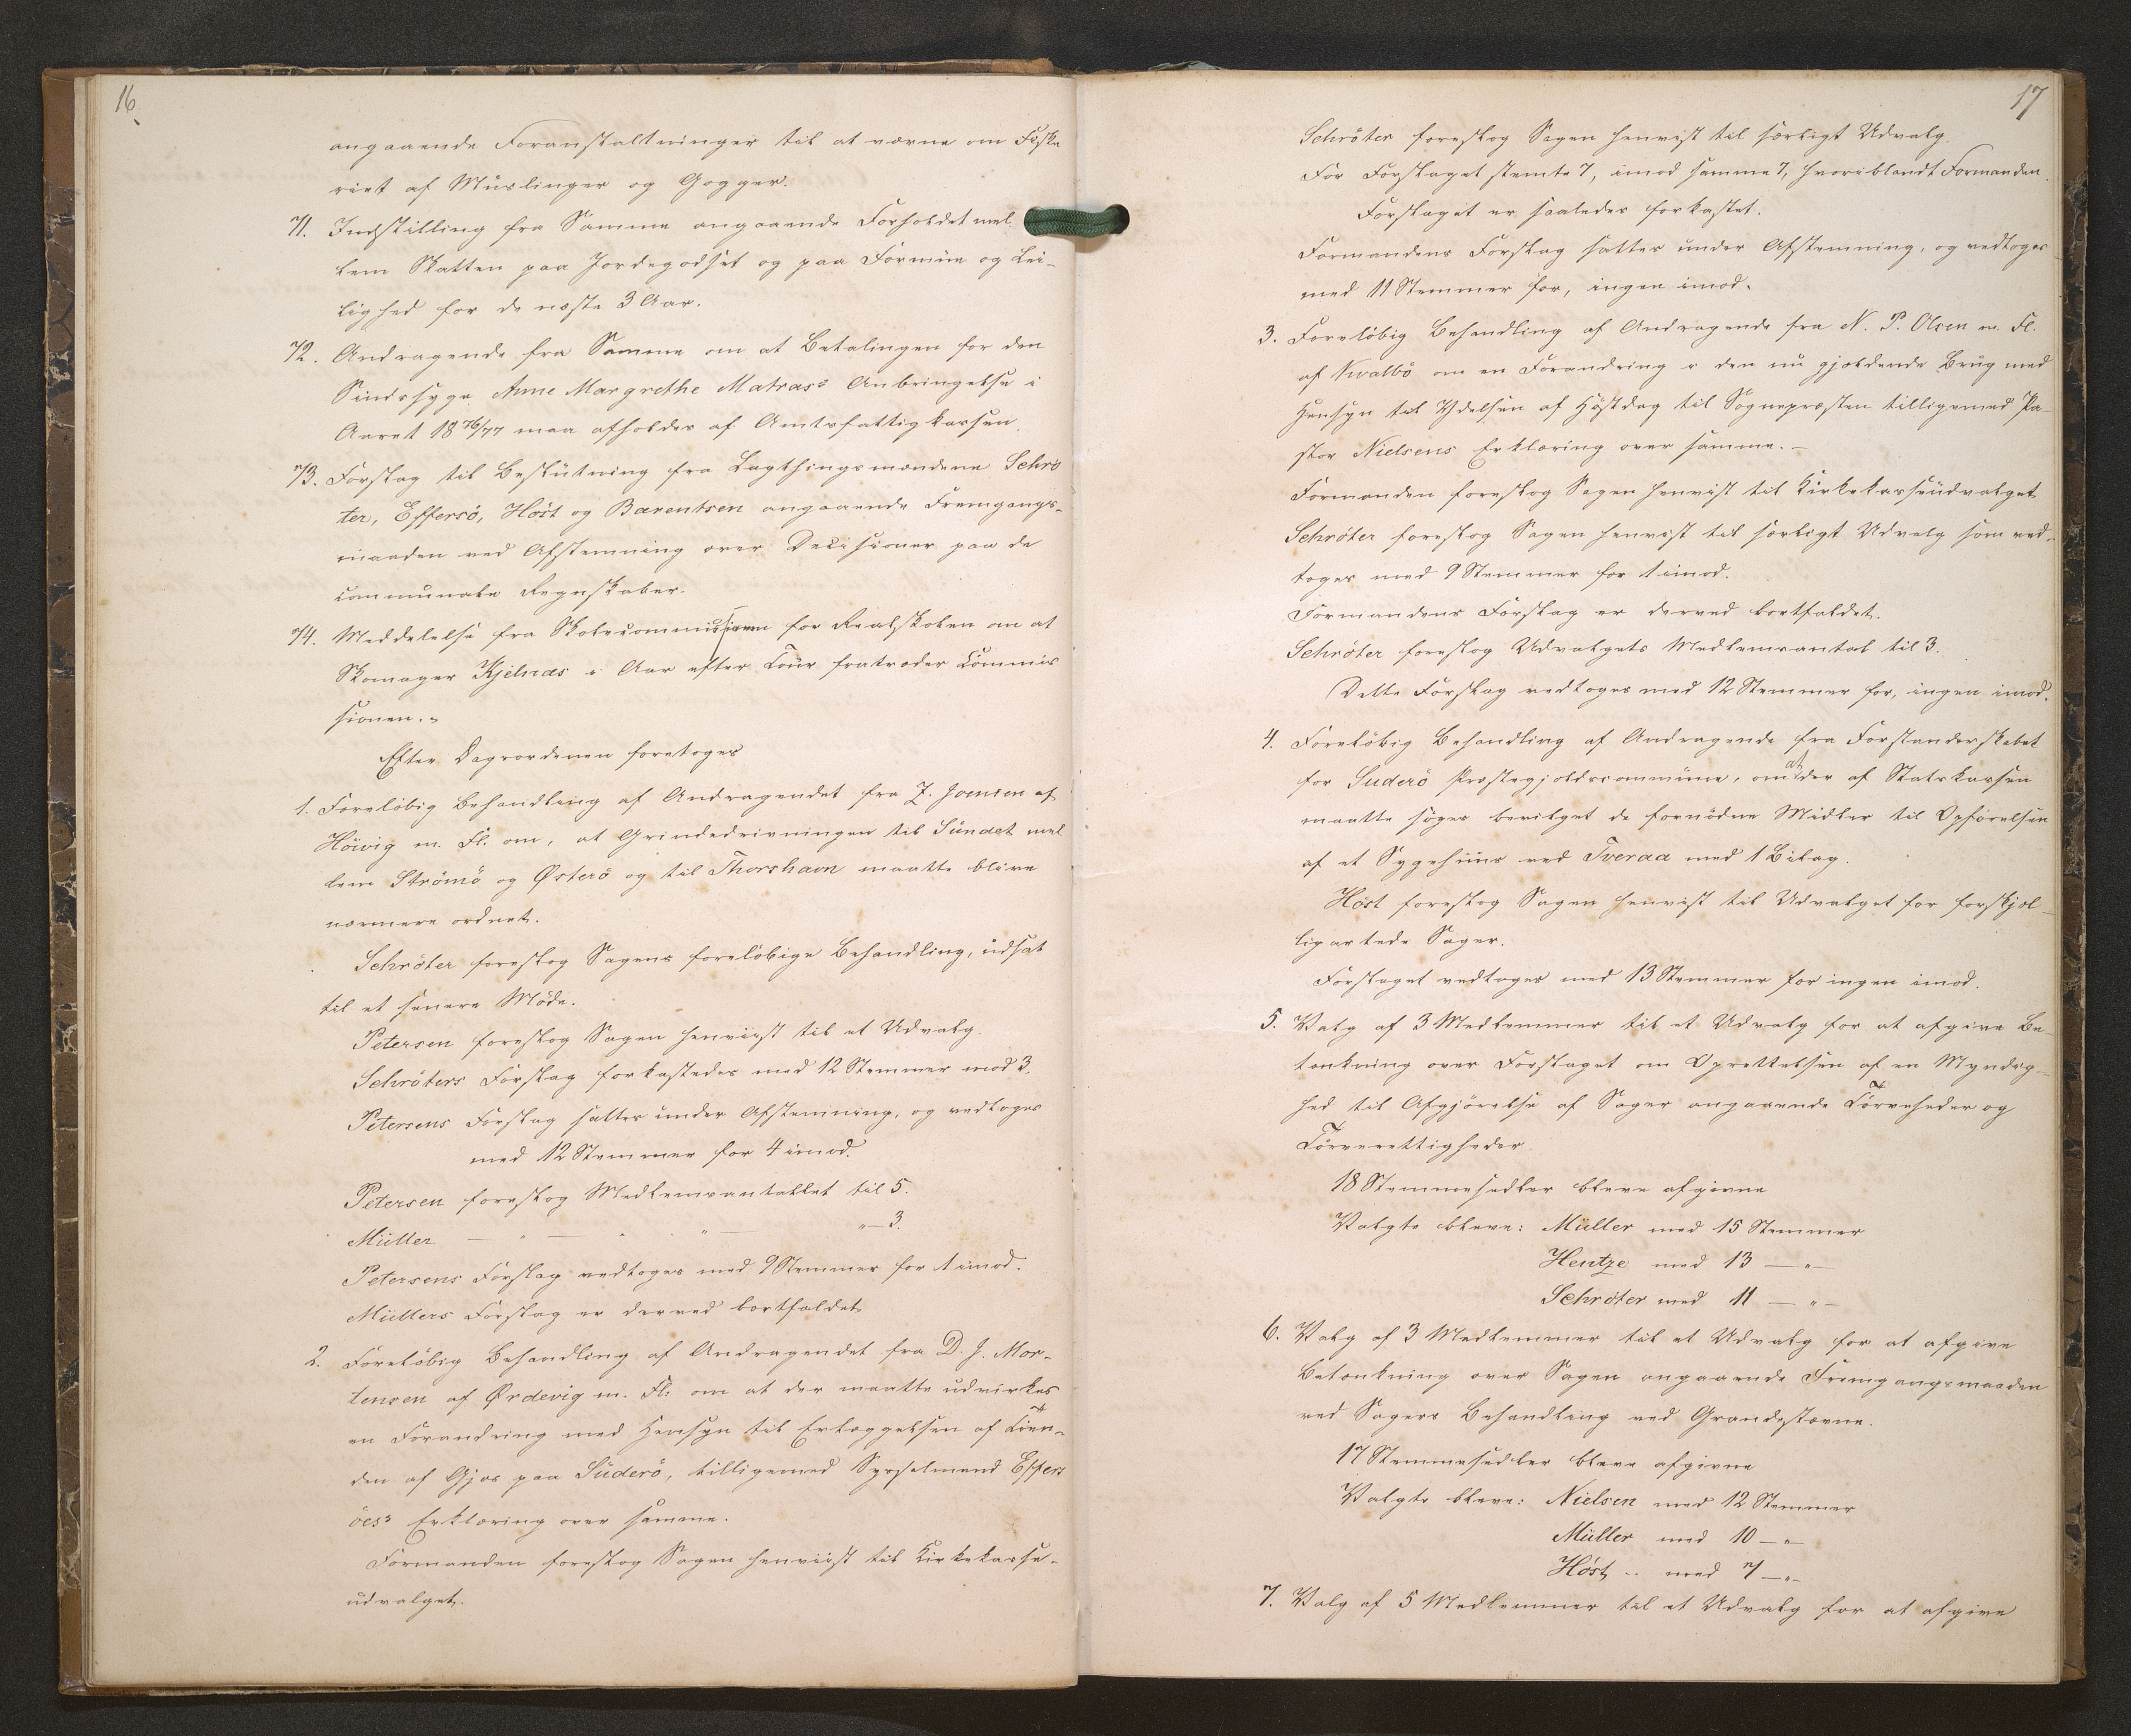 16.
angaaende Foranstaltninger til at værne om Fiske
riet af Muslinger og Gogger.
71. Indstilling fra Samme angaaende Forholdet mel
lem Skatten paa Jordegodset og paa Formue og Lei-
lighed for de næste 3 Aar.
72. Andragende fra Samme om at Betalingen for den
Sindssyge Anne Margrethe Matras's Anbringelse i
Aaret 1876/77 maa afholdes af Amtsfattigkassen.
73. Forslag til Beslutning fra Lagthingsmændene Schrö
ter, Effersö, Höst og Bærentsen angaaende Fremgangs-
maaden ved Afstemning over Decisioner paa de
communale Regnskaber.
74. Meddelelse fra Skolecommissionen for Realskolen om at
Skomager Kjelnæs i Aar efter Tour fratræder Commis
sionen.
Efter Dagsordenen foretoges
1. Foreløbig Behandling af Andragendet fra J. Joensen af
Höivig m. Fl. om, at Grindedrivningen til Sundet mel
lem Strömö og Østerö og til Thorshavn maatte blive
nærmere ordnet.
Schröter foreslog Sagens foreløbige Behandling, udsat
til et senere Møde.
Petersen foreslog Sagen henviist til et Udvalg.
Schröters Forslag forkastedes med 12 Stemmer mod 3.
Petersens Forslag sattes under Afstemning, og vedtoges
med 12 Stemmer for 4 imod.
Petersen foreslog Medlemsantallet til 5.
Müller — " — " " — " — 3.
Petersens Forslag vedtoges med 9 Stemmer for 1 imod.
Müllers Forslag er derved bortfaldet
2. Foreløbig Behandling af Andragendet fra D. J. Mor-
tensen af Ørdevig m. Fl. om at der maatte udvirkes
en Forandring med Hensyn til Erlæggelsen af Tien-
den af Gjæs paa Süderö, tilligemed Sysselmand Effers
öes's Erklæring over samme.
Formanden foreslog Sagen henviist til Kirkekasse-
udvalget.
17
Schröter foreslog Sagen henvist til særligt Udvalg.
For Forslaget stemte 7, imod samme 7, hvoriblandt Formanden.
Forslaget er saaledes forkastet.
Formandens Forslag sattes under Afstemning, og vedtoges
med 11 Stemmer for, ingen imod.
3. Foreløbig Behandling af Andragende fra N. P. Olsen m. Fl.
af Kvalbö om en Forandring i den nu gjældende Brug med
Hensyn til Ydelsen af Høstdag til Sognepræsten tilligemed Pa-
stor Nielsens Erklæring over samme.—
Formanden foreslog Sagen henvist til Kirkekasseudvalget
Schröter foreslog Sagen henvist til særligt Udvalg som ved-
toges med 9 Stemmer for 1 imod.
Formandens Forslag er derved bortfaldet.
Schröter foreslog Udvalgets Medlemsantal til 3.
Dette Forslag vedtoges med 12 Stemmer for, ingen imod.
4. Foreløbig Behandling af Andragende fra Forstanderskabet
for Suderö Præstegjældscommüne, om at der af Statskassen
maatte søges bevilget de fornødne Midler til Opførelsen
af et Sygehuus ved Tveraa med 1 Bilag.
Höst foreslog Sagen henvist til Udvalget for forskjel-
ligartede Sager.
Forslaget vedtoges med 13 Stemmer for ingen imod.
5. Valg af 3 Medlemmer til et Udvalg for at afgive Be-
tænkning over Forslaget om Oprettelsen af en Myndig-
hed til Afgjørelse af Sager angaaende Tørveheder og
Tørverettigheder.
18 Stemmesedler bleve afgivne
Valgte bleve: Müller med 15 Stemmer
Hentze med 13 — " —
Schröter med 11 — " —
6. Valg af 3 Medlemmer til et Udvalg for at afgive
Betænkning over Sagen angaaende Fremgangsmaaden
ved Sagers Behandling ved Grandestævne.
17 Stemmesedler bleve afgivne
Valgte bleve: Nielsen med 12 Stemmer
Müller med 10 — " —
Höst .. med 7 — " —
7. Valg af 5 Medlemmer til et Udvalg for at afgive